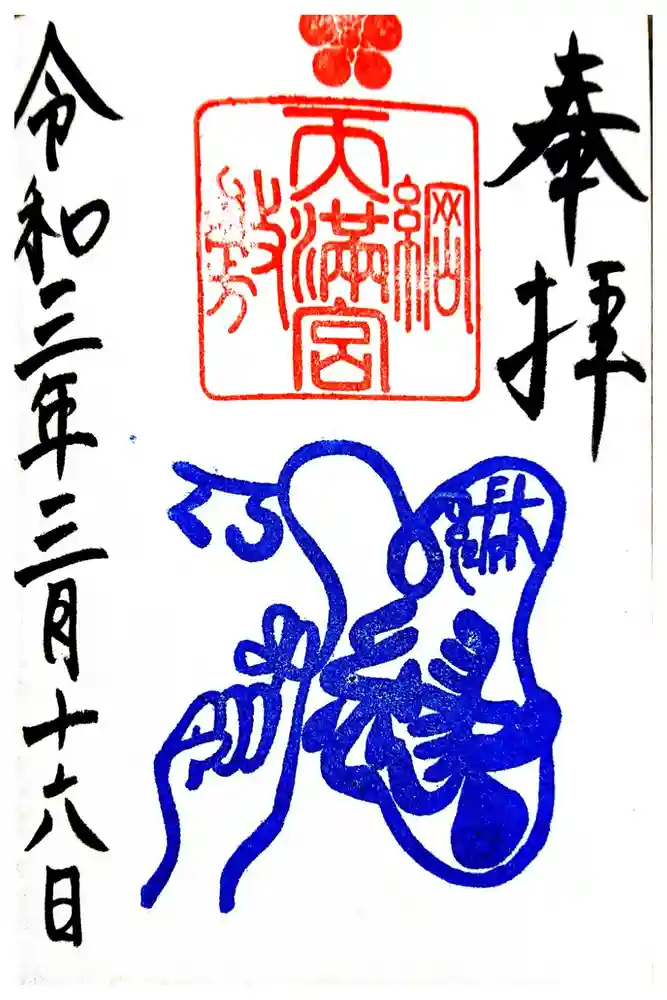 奉拝
綱
天満宮
敷
縁
令和三年三月十六日